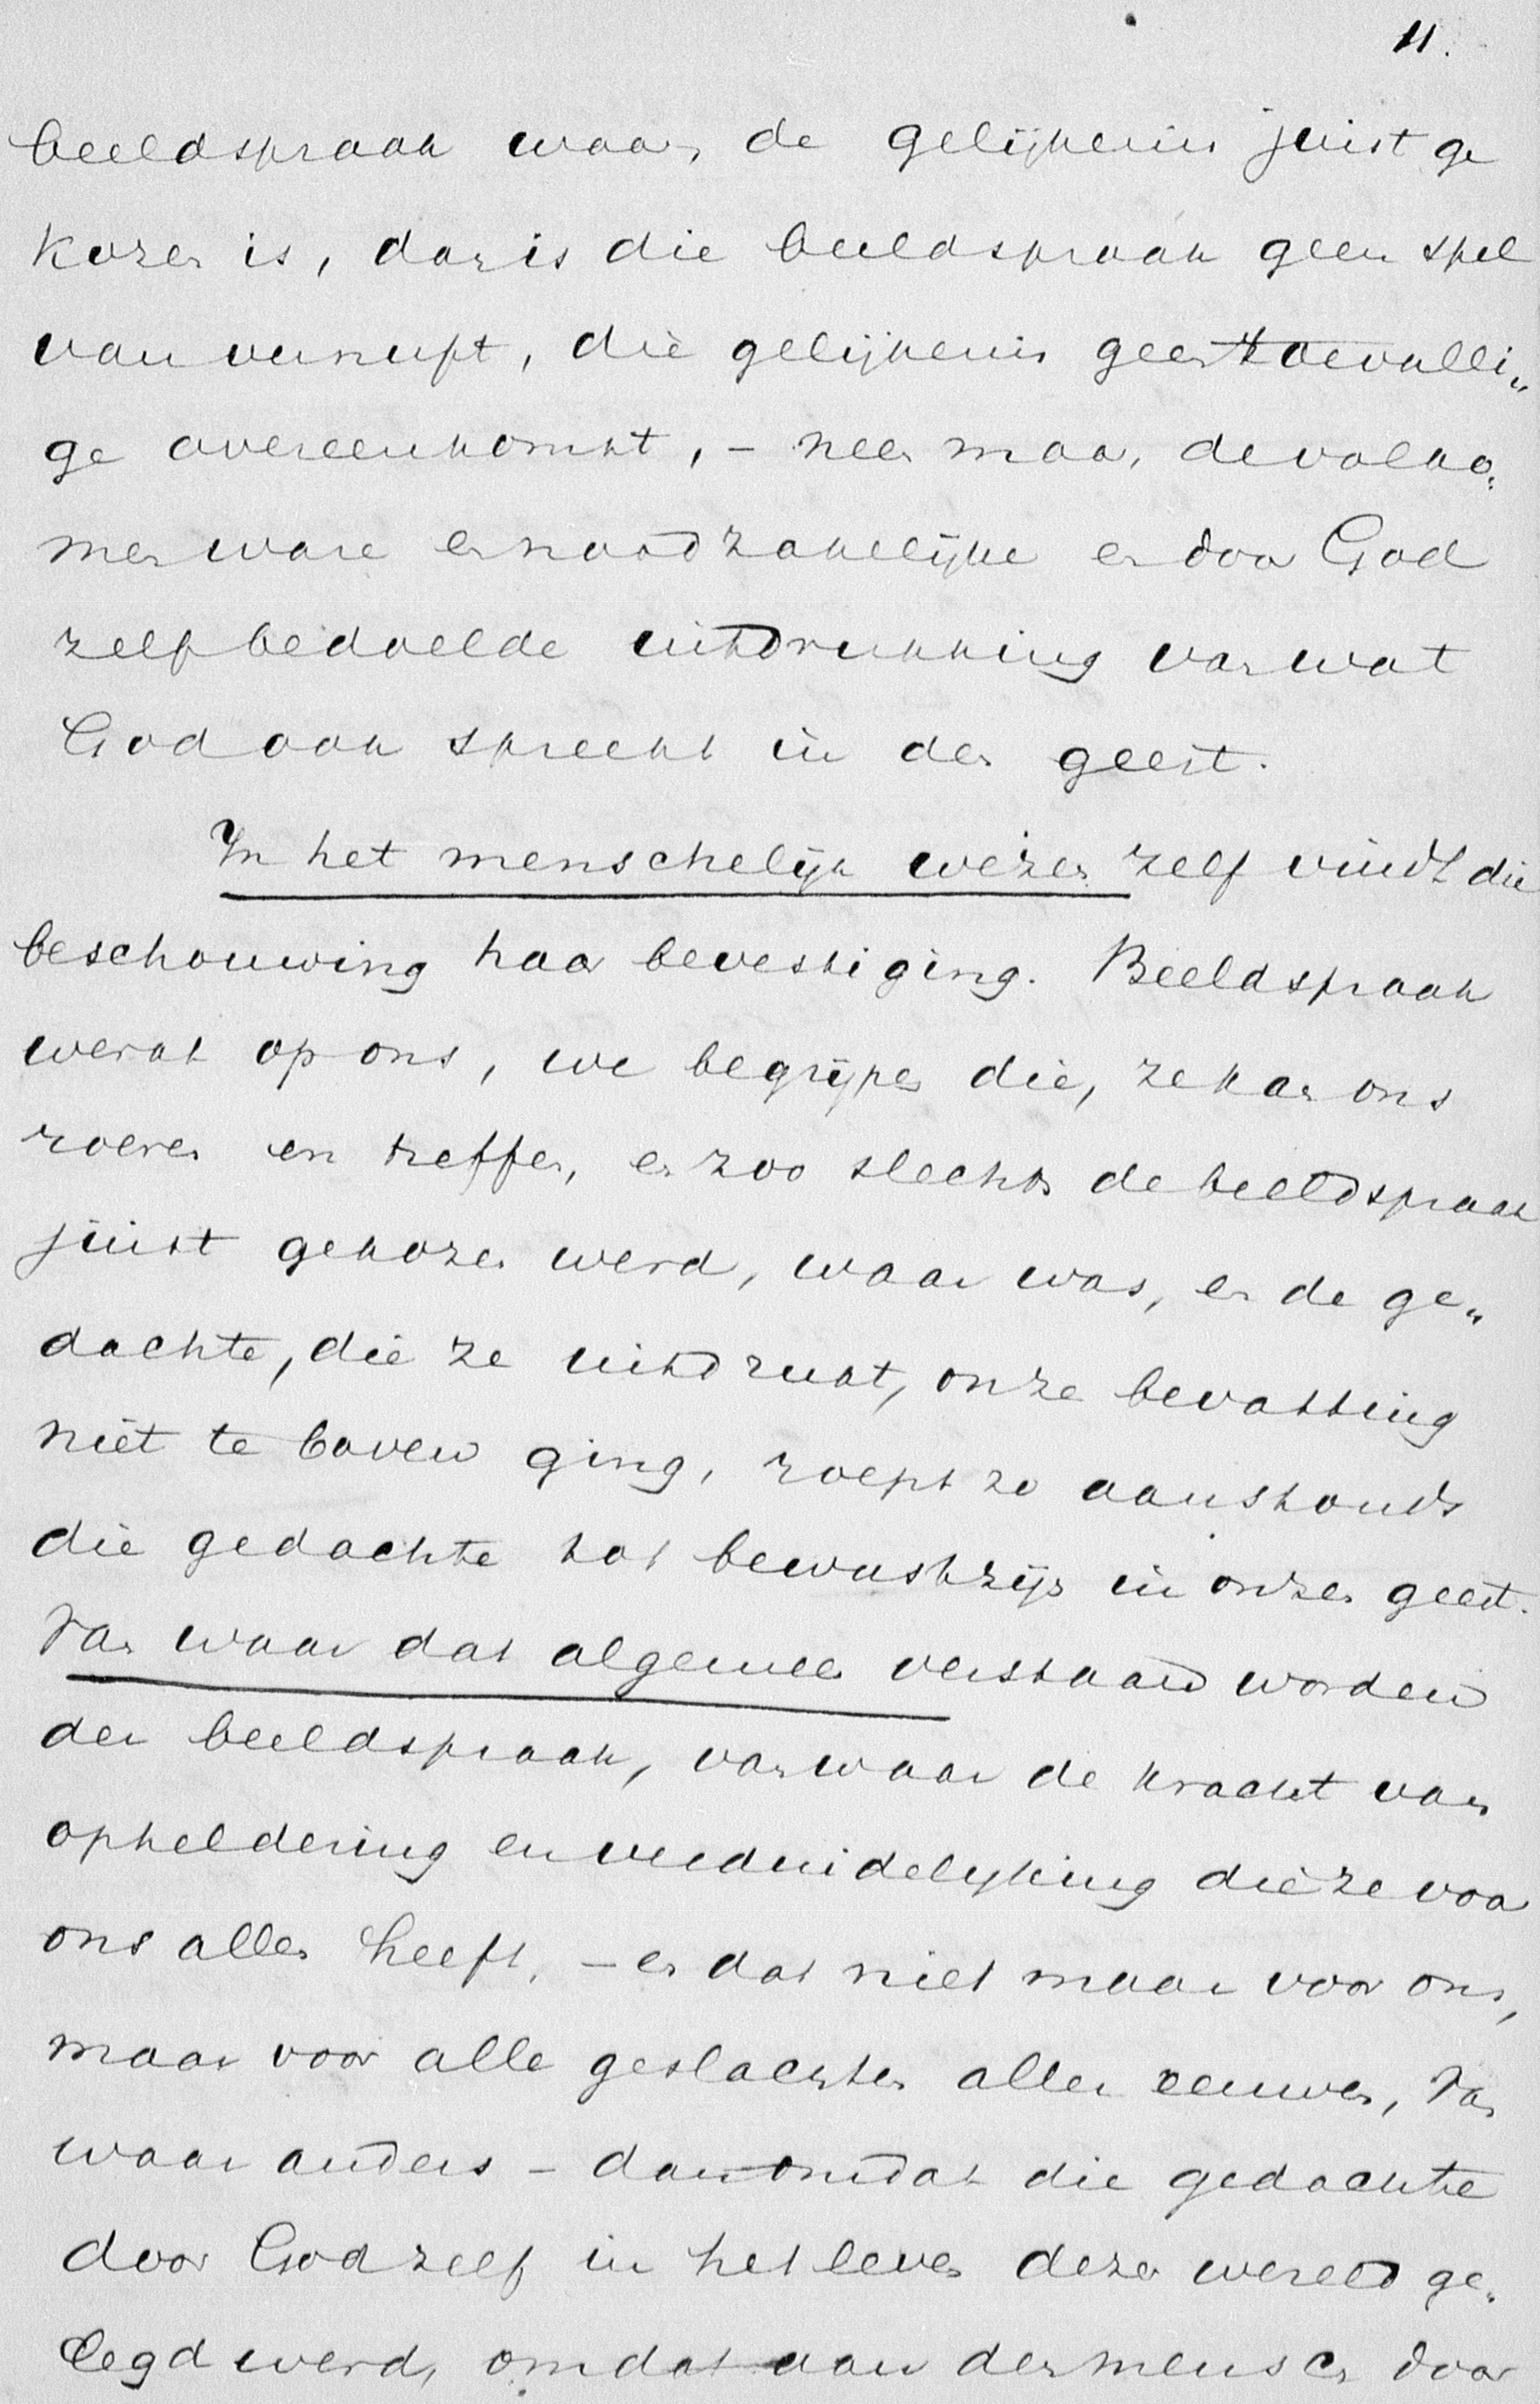 11.
beeldspraak waar, de gelijkenis juist ge
kozen is, dan is die beeldspraak geen spel
van vernuft, die gelijkenis geen toevalli„
ge overeenkomst, – neen maar, de volko„
men ware en noodzakelijke en door God
zelf bedoelde uitdrukking van wat
God ook spreekt in den geest.
In het menschelijk wezen zelf vindt die
beschouwing haar bevestiging. Beeldspraak
werkt op ons, we begrijpen die, ze kan ons
roeren en treffen, en zoo slechts de beeldspraak
juist gekozen werd, waar was, en de ge„
dachte, die ze uitdrukt, onze bevatting
niet te boven ging, roept ze aanstonds
die gedachte tot bewustzijn in onzen geest.
Van waar dat algemeen verstaan worden
der beeldspraak, van waar de kracht van
opheldering en verduidelijking die ze voor
ons allen heeft, – en dat niet maar voor ons,
maar voor alle geslachten aller eeuwen, van
waar anders – dan omdat die gedachte
door God zelf in het leven dezer wereld ge„
legd werd, omdat aan den mensch door